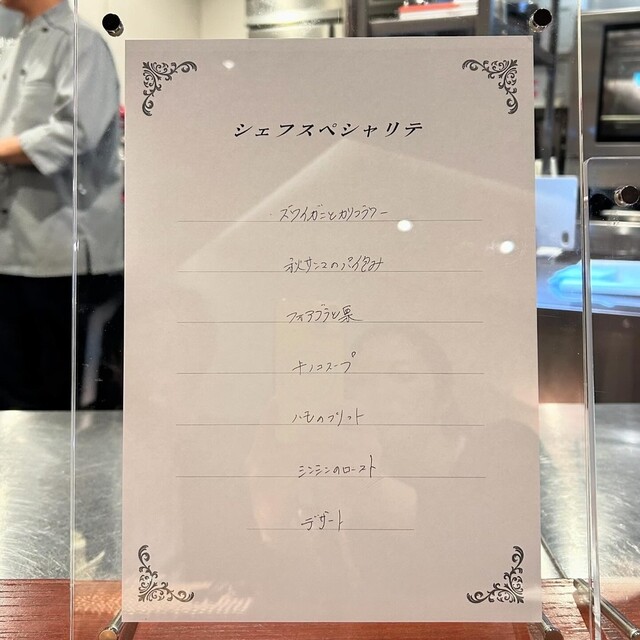 シェフスペシャリテ
ズワイガニとカリフラワー
秋サンマのパイ包み
フォアグラと栗
キノコスープ
ハモのフリット
シンシンのロースト
デザート